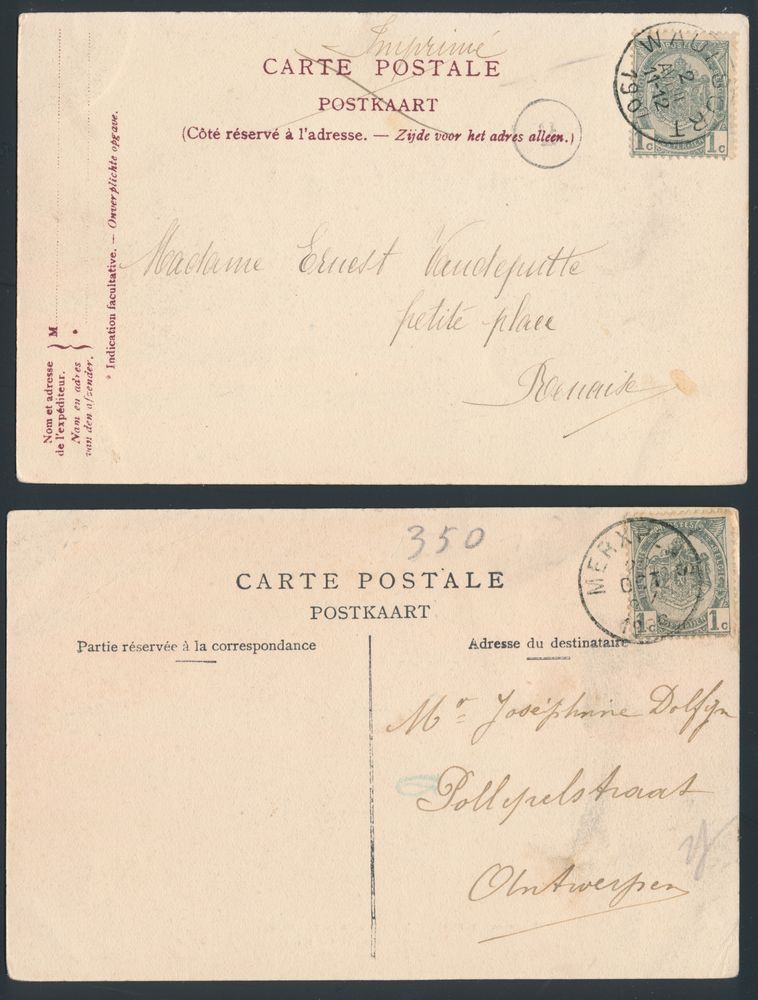 Imprimé
CARTE POSTALE
POSTKAART
(Côté réservé à l'adresse. — Zijde voor het adres alleen.)
POSTES
1c 1c
1901
11-12
Madame Ernest Vandeputte
petite place
Renaise
Nom et adresse
de l'expéditeur.
Nam en adres
van den afzender.
M
*
* Indication facultative. — Onverplichte opgave.
350
CARTE POSTALE
POSTKAART
Partie réservée à la correspondance
Adresse du destinataire
POSTES
1c 1c
MERX
OCT
Mr Joséphine Dolfyn
Pollepelstraat
Antwerpen